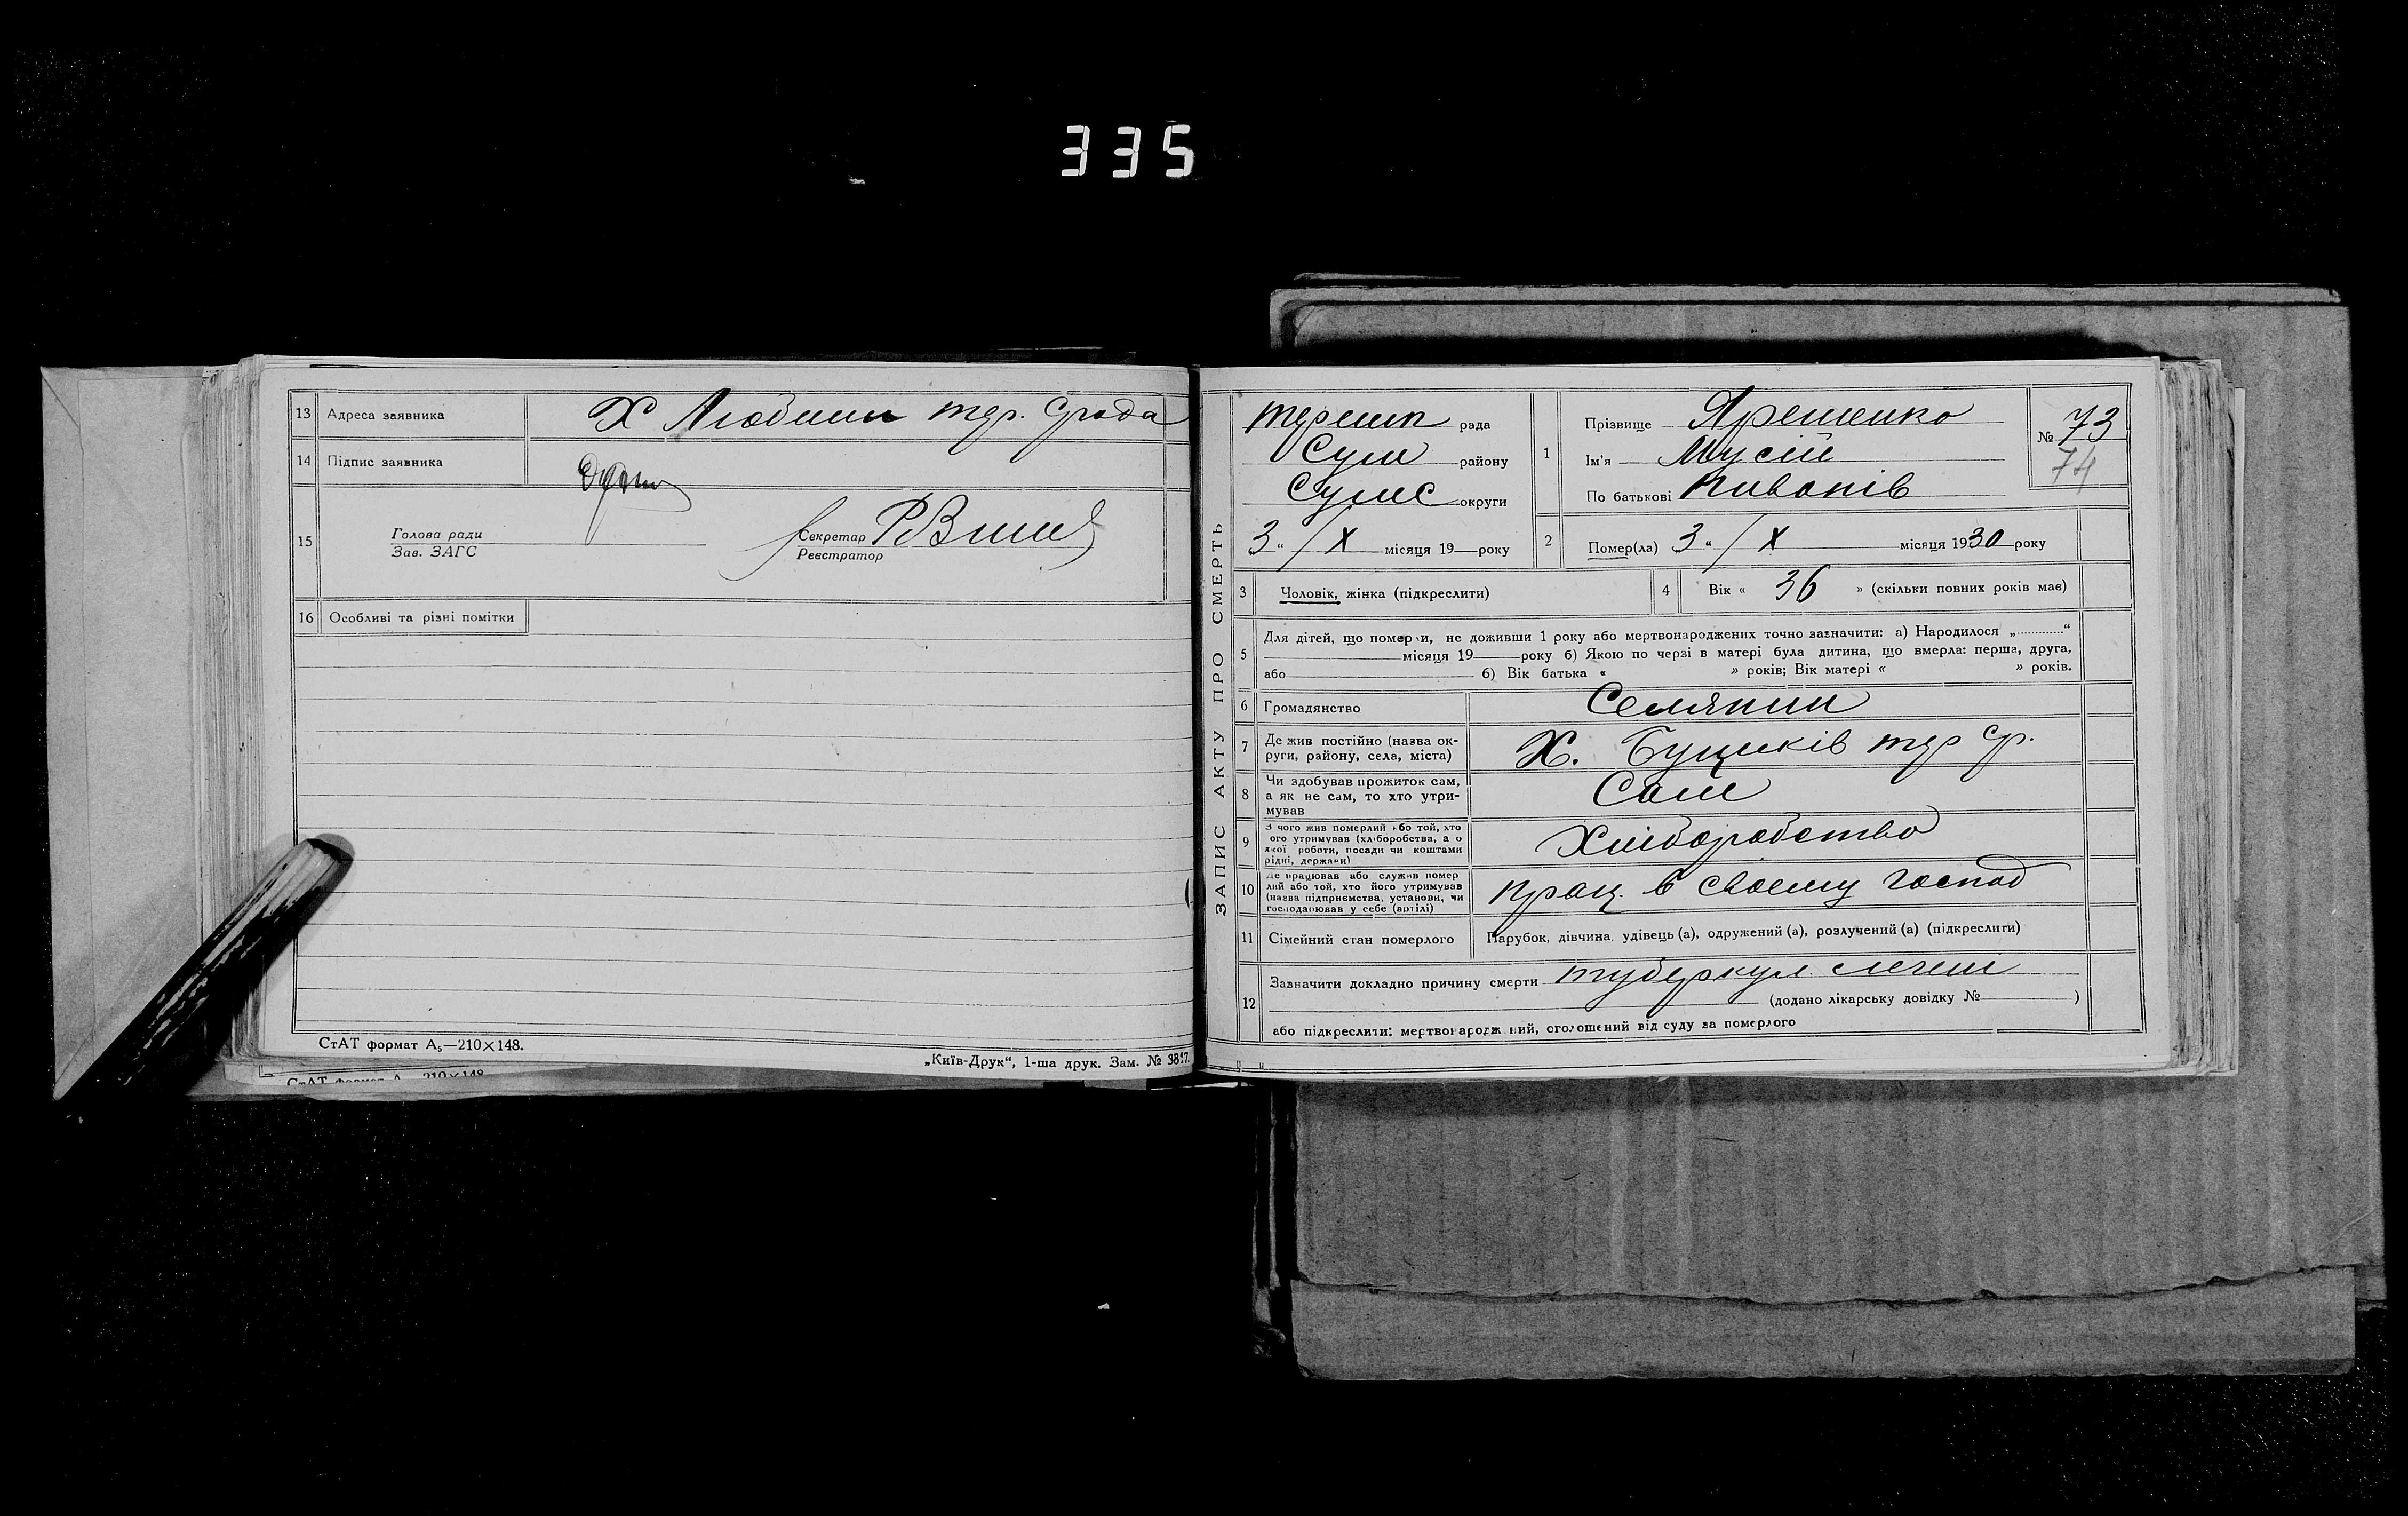 335
13 Адреса заявника Х Любими тер. Срада
14 Підпис заявника
15 Голова ради Зав. ЗАГС
Секретар Реєстратор
16 Особливі та різні помітки
СтАТ формат А₅—210×148.
„Київ-Друк“, 1-ша друк. Зам. №
СтАТ формат А 210×148
ЗАПИС АКТУ ПРО СМЕРТЬ
рада
Сум району
Сумс округи
3 „ / X місяця 19 року
1 Прізвище Ярешенко
Ім'я Мусій
По батькові
№ 73
74
2 Помер(ла) 3 „ / X місяця 1930 року
3 Чоловік, жінка (підкреслити)
4 Вік « 36 » (скільки повних років має)
5 Для дітей, що померли, не доживши 1 року або мертвонароджених точно зазначити: а) Народилося „............“
місяця 19 року б) Якою по черзі в матері була дитина, що вмерла: перша, друга,
або б) Вік батька « » років; Вік матері « » років.
6 Громадянство Селянин
7 Де жив постійно (назва округи, району, села, міста) Х. тер ср.
8 Чи здобував прожиток сам, а як не сам, то хто утримував Сам
9 З чого жив померлий або той, хто його утримував (хліборобства, а о якої роботи, посади чи коштами рідні, держави) Хліборобство
10 Де працював або служив померлий або той, хто його утримував (назва підприємства, установи, чи господарював у себе (артілі) прац. в своєму господ
11 Сімейний стан померлого Парубок, дівчина, удівець (а), одружений (а), розлучений (а) (підкреслити)
12 Зазначити докладно причину смерти туберкул. легень
(додано лікарську довідку № )
або підкреслити: мертвонароджений, оголошений від суду за померлого